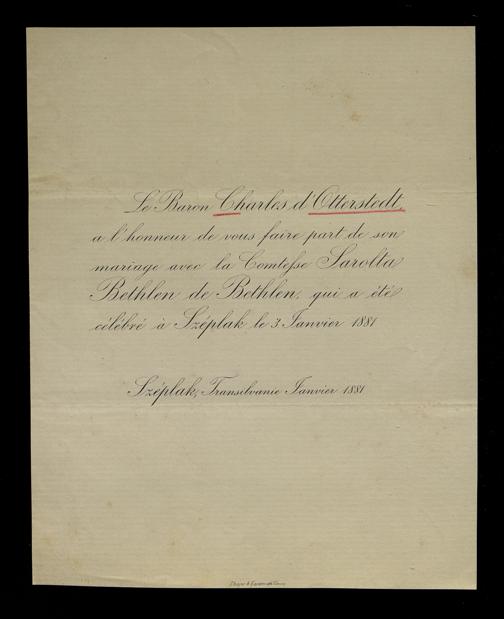 Le Baron Charles d'Otterstedt,
a l'honneur de vous faire part de son
mariage avec la Comtesse Sarolta
Bethlen de Bethlen, qui a été
célébré à Széplak le 3 Janvier 1881
Széplak, Transilvanie Janvier 1881